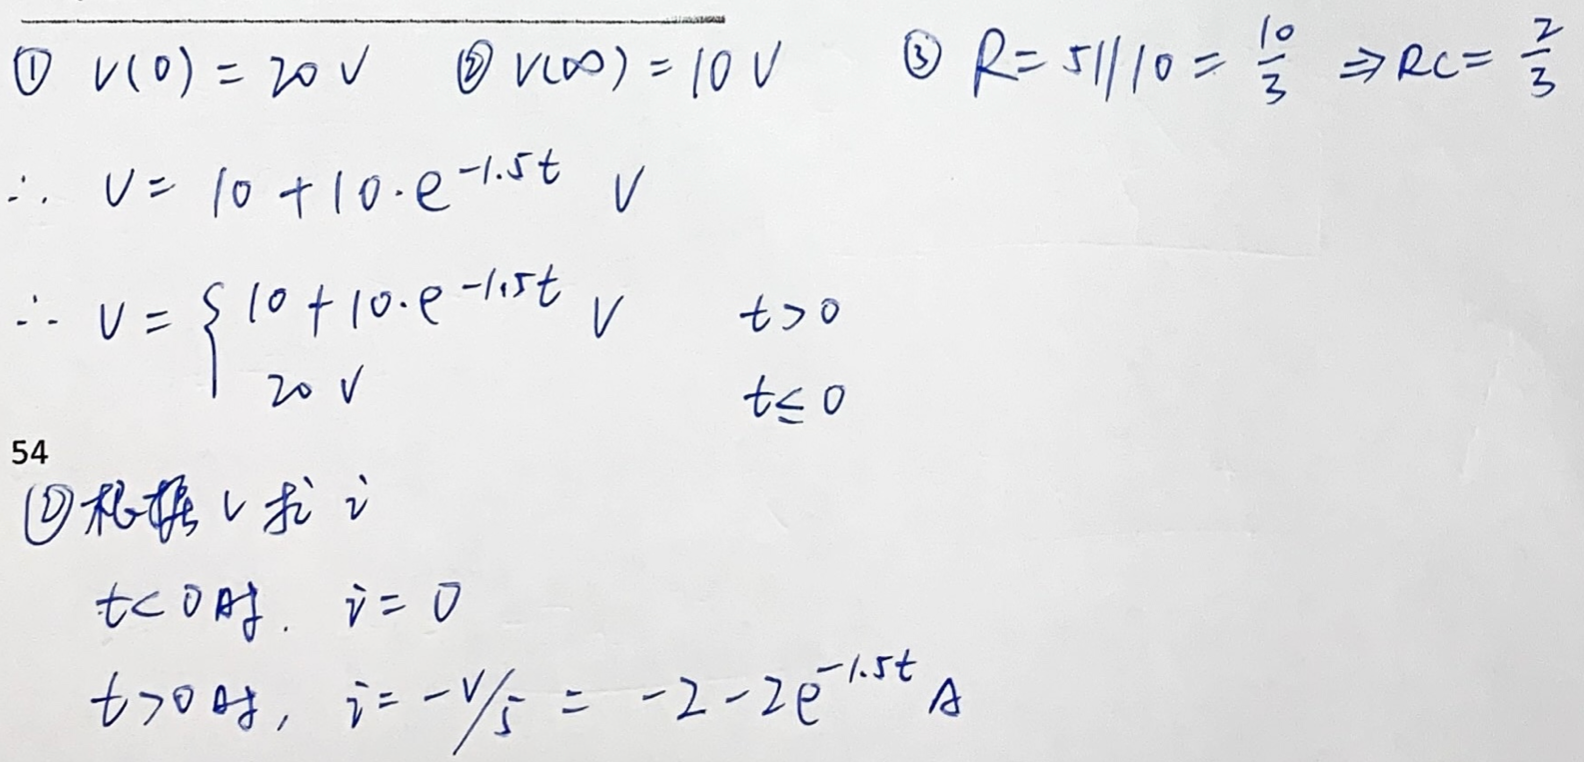 ① V(0) = 20 V ② V(∞) = 10 V ③ R = 5 // 10 = 10/3 ⇒ RC = 2/3
∴ V = 10 + 10·e^-1.5t V
∴ V = { 10 + 10·e^-1.5t V t > 0
20 V t ≤ 0
54
① 根据 V 求 i
t < 0 时. i = 0
t > 0 时, i = -V/5 = -2 - 2e^-1.5t A